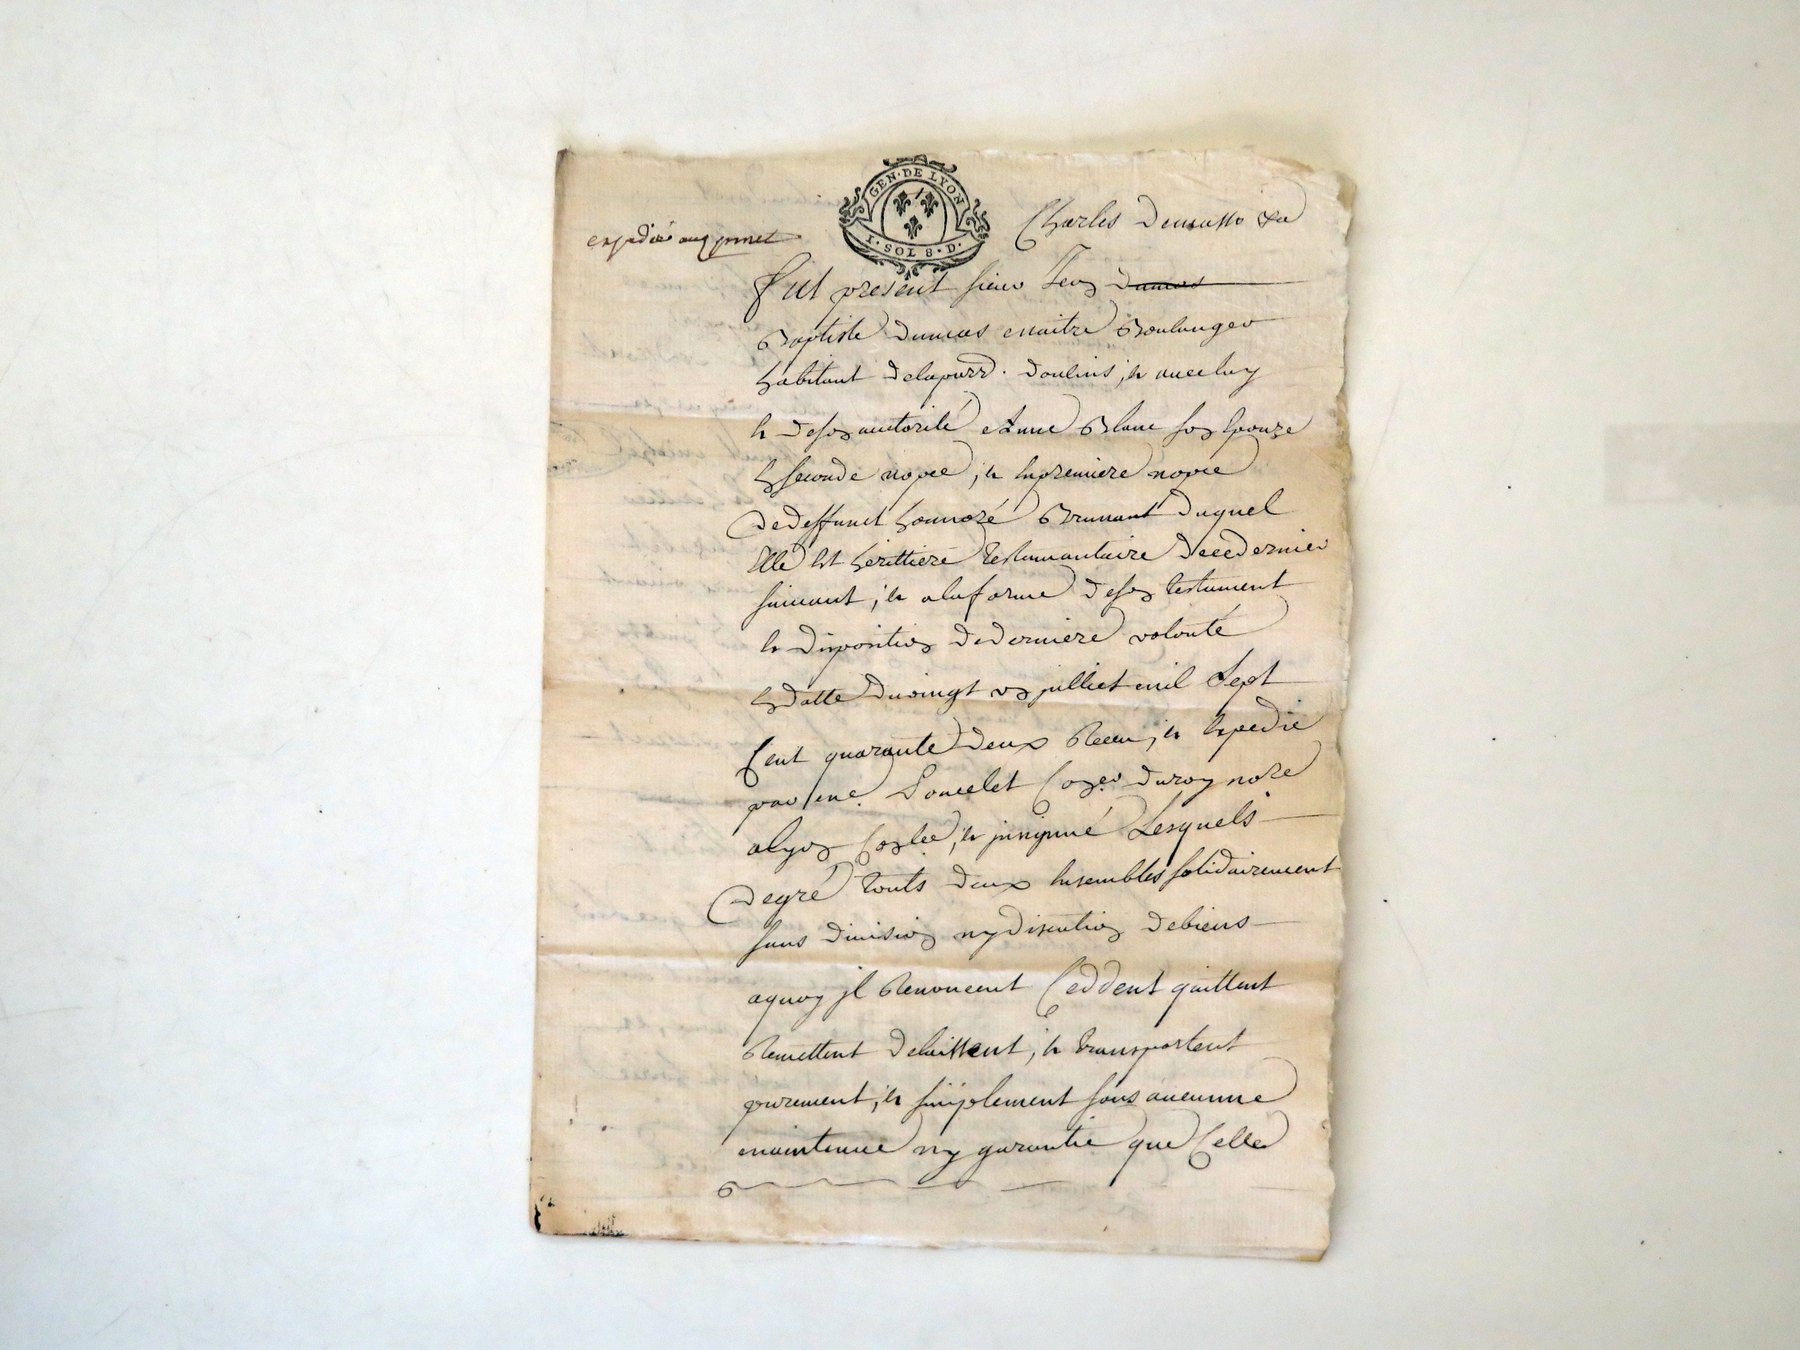 GEN·DE LYON
I·SOL 8·D·
expedié
Charles
Fut present sieur Jean Dumas
Baptiste Dumas maitre Boulanger
habitant delaparr. doulins, et avec luy
et deson autorité Anne Blanc son Epouze
En seconde nopce, et En premiere nopce
de deffunct honnoré Brunant duquel
Elle Est herittiere testamantaire de ce dernier
suivant, et alaforme deson testament
et disposition dederniere volonté
En datte du vingt un jullict mil Sept
Cent quarante deux Receu, et Expedié
par me. Poncelet Coner. du roy nore
alyon Conlee, et jnsinué Lesquels
degré touts deux Ensembles solidairement
sans division ny discution debiens
aquoy jl Renoncent Ceddent quittent
Remettent delaissent, et transportent
purement, et simplement sans aucunne
maintenue ny garantie que Celle